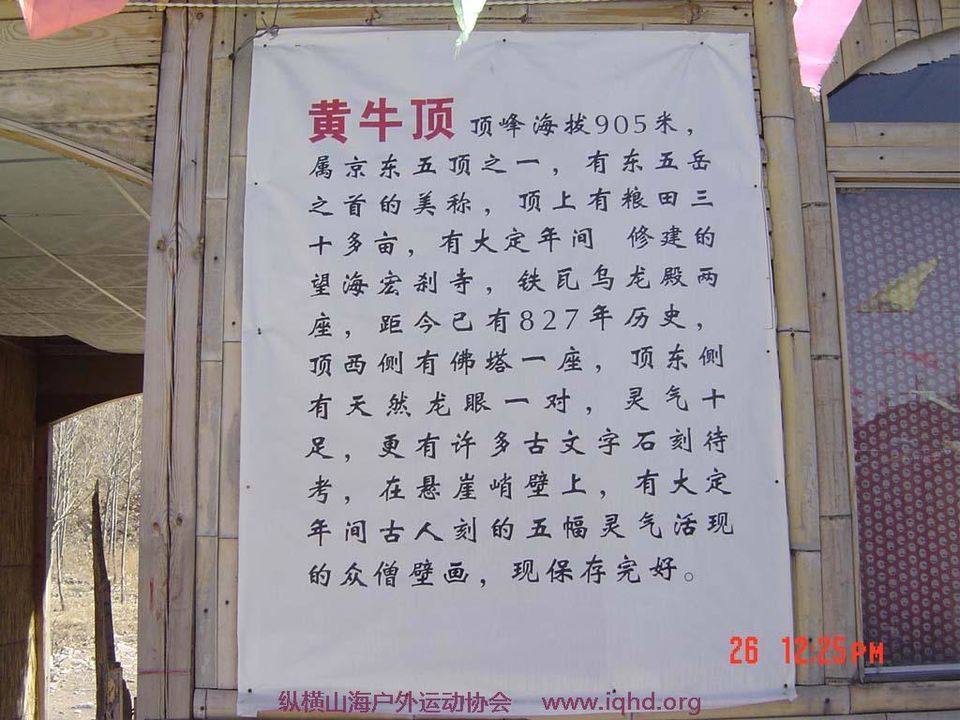 黄牛顶 顶峰海拔905米，
属京东五顶之一，有东五岳
之首的美称，顶上有粮田三
十多亩，有大定年间 修建的
望海宏刹寺，铁瓦乌龙殿两
座，距今已有827年历史，
顶西侧有佛塔一座，顶东侧
有天然龙眼一对，灵气十
足，更有许多古文字石刻待
考，在悬崖峭壁上，有大定
年间古人刻的五幅灵气活现
的众僧壁画，现保存完好。
26 12:25PM
纵横山海户外运动协会 www.iqhd.org